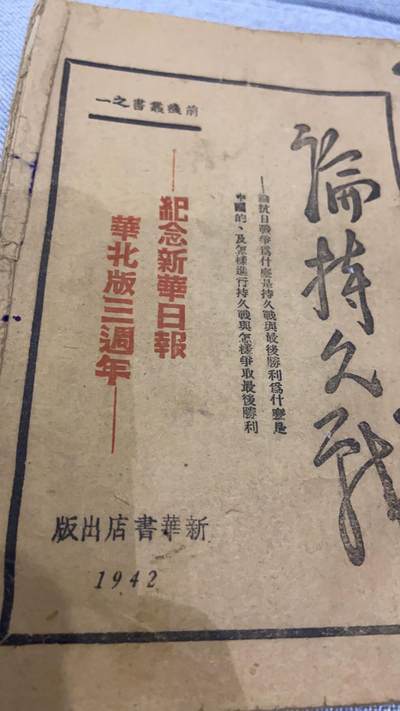 論持久戰
——論抗日戰爭爲什麼是持久戰與最後勝利爲什麼是
中國的、及怎樣進行持久戰與怎樣爭取最後勝利
前綫叢書之一
——紀念新華日報
華北版三週年——
新華書店出版
1942